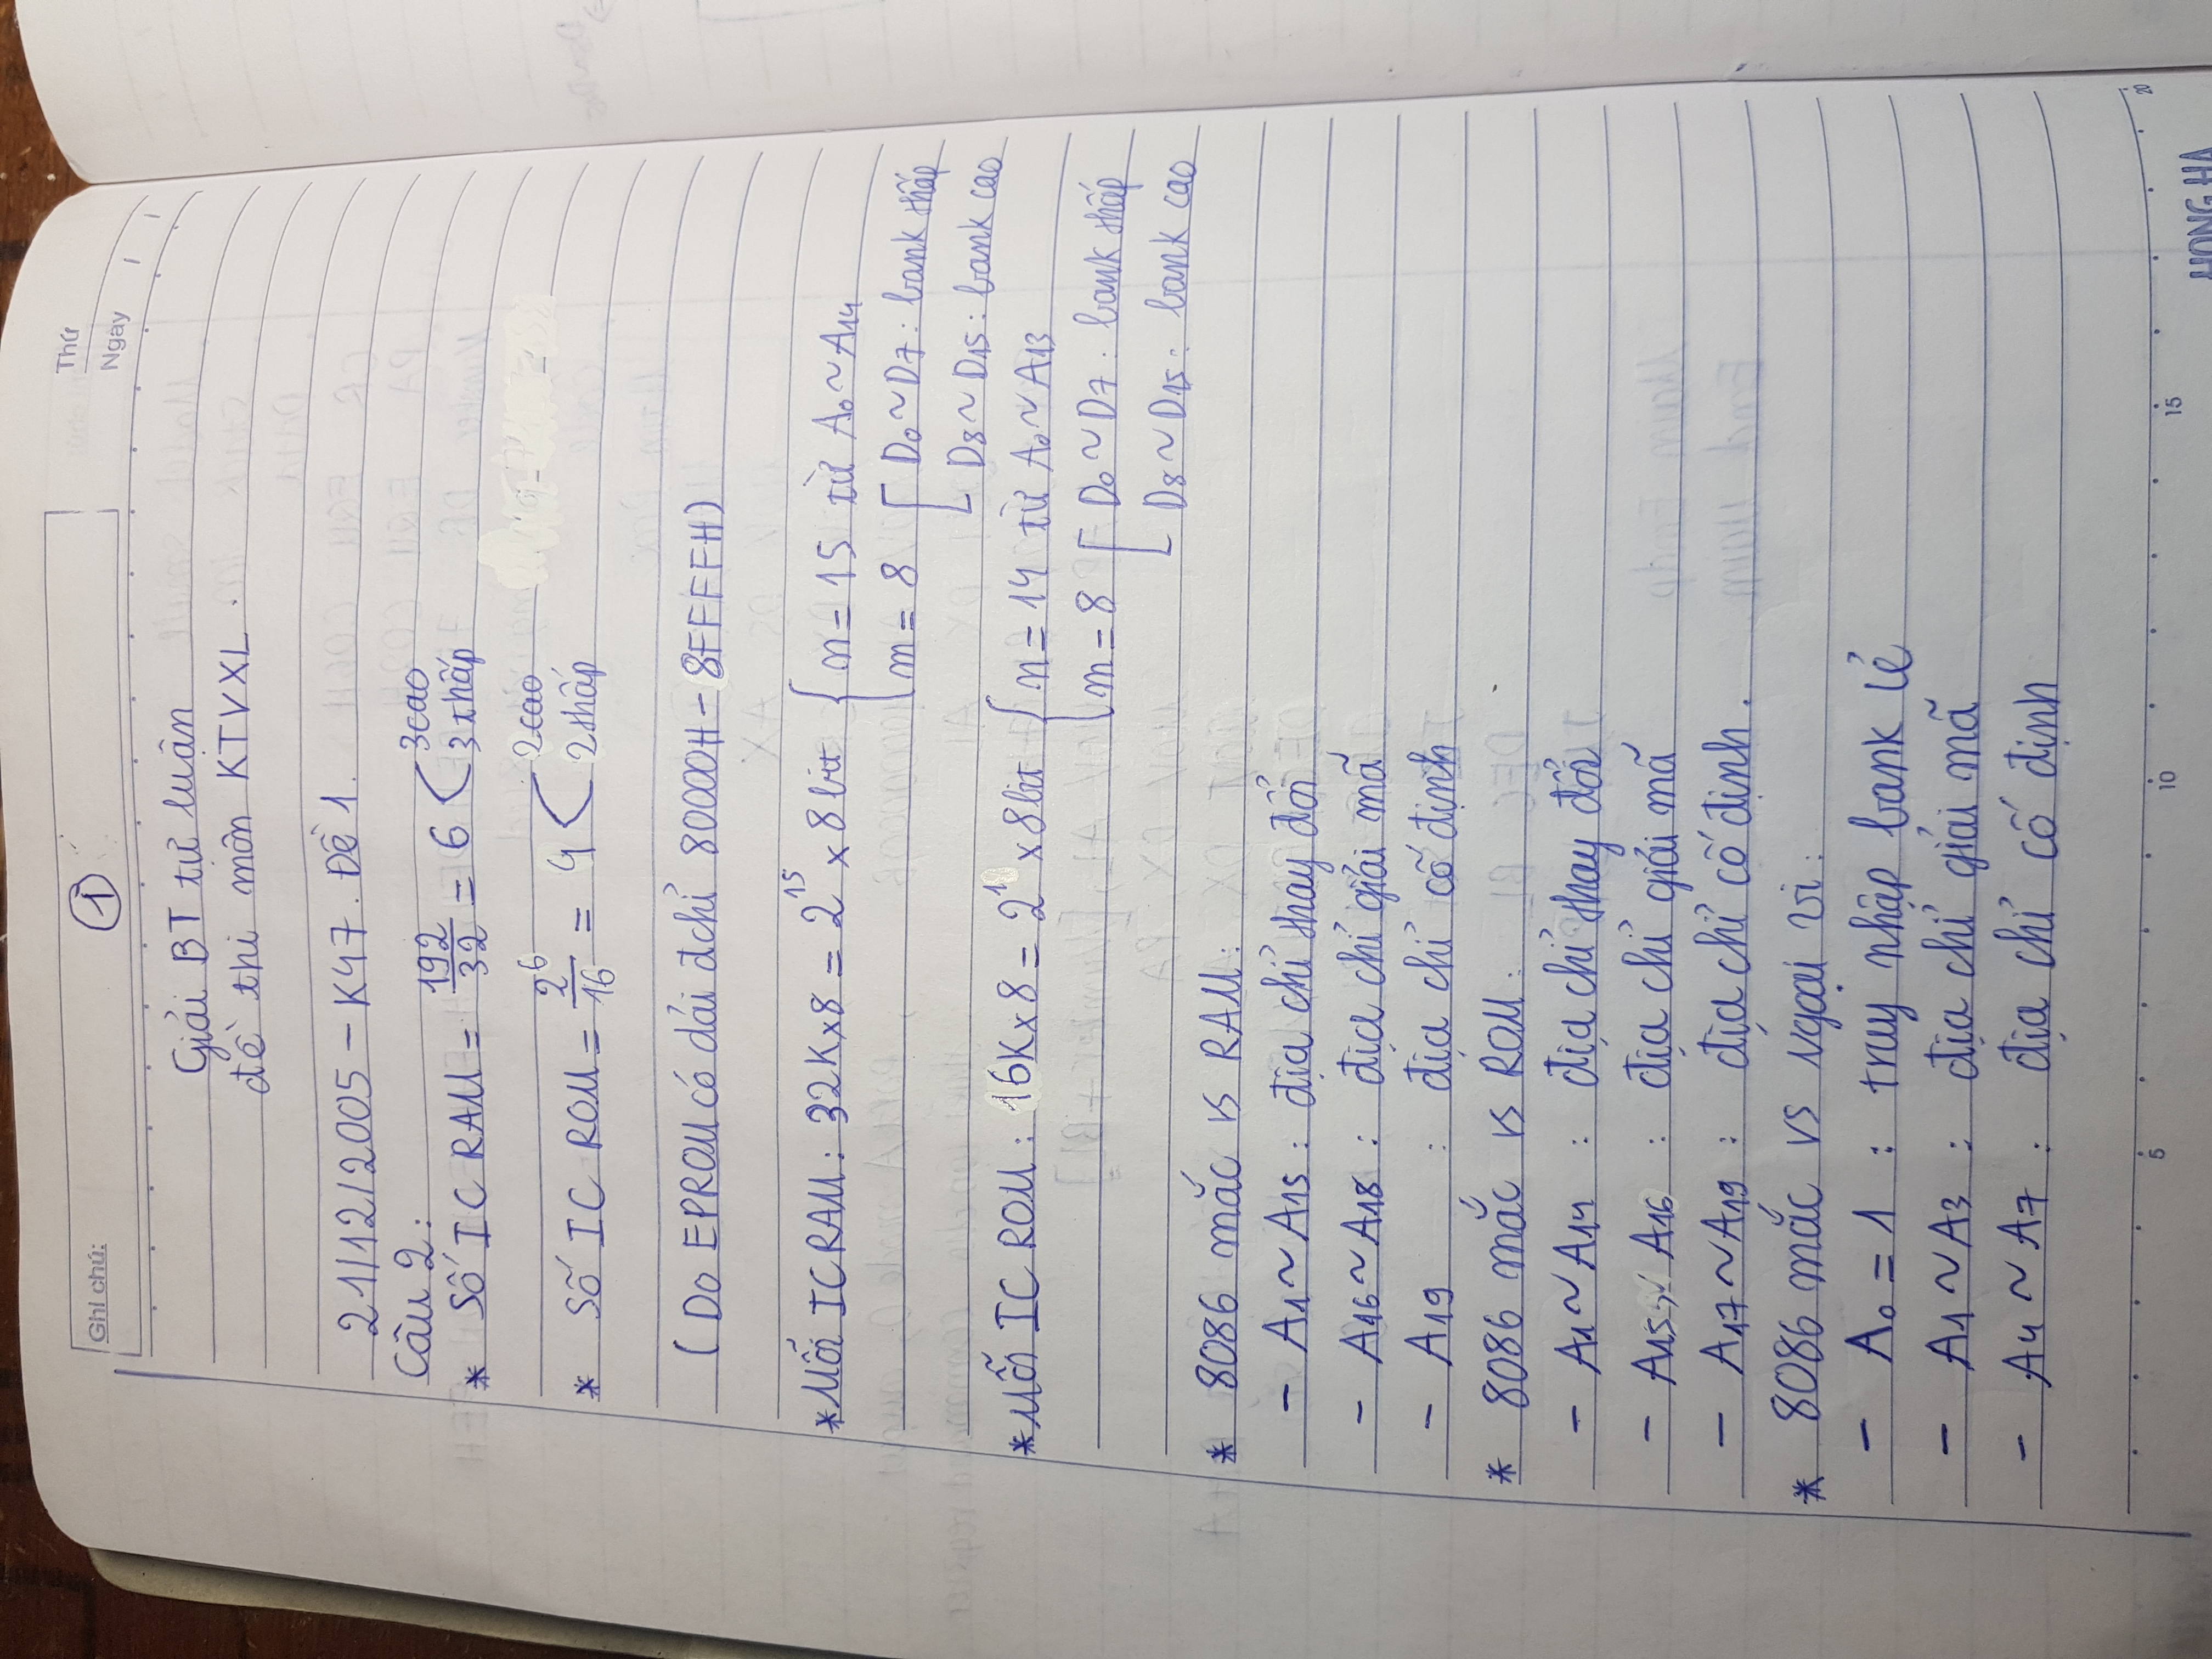 Ghi chú:
1
Thứ
Ngày / /
Giải BT tự luận
đề thi môn KTVXL.
21/12/2005 – K47. Đề 1.
Câu 2:
* Số IC RAM = 192/32 = 6 < 3 cao
3 thấp
* Số IC ROM = 2^6/16 = 4 < 2 cao
2 thấp
(Do EPROM có dải đchỉ 80000H – 8FFFFH)
* Mỗi IC RAM: 32K×8 = 2^15 × 8 bit { n = 15 từ A0 ~ A14
m = 8 [ D0 ~ D7: bank thấp
D8 ~ D15: bank cao
* Mỗi IC ROM: 16K×8 = 2^1 × 8 bit { n = 14 từ A0 ~ A13
m = 8 [ D0 ~ D7: bank thấp
D8 ~ D15: bank cao
* 8086 mắc vs RAM:
– A1 ~ A15 : địa chỉ thay đổi
– A16 ~ A18 : địa chỉ giải mã
– A19 : địa chỉ cố định
* 8086 mắc vs ROM:
– A1 ~ A14 : địa chỉ thay đổi
– A15, A16 : địa chỉ giải mã
– A17 ~ A19 : địa chỉ cố định.
* 8086 mắc vs Ngoại vi:
– A0 = 1 : truy nhập bank lẻ
– A1 ~ A3 : địa chỉ giải mã
– A4 ~ A7 : địa chỉ cố định
5 10 15 20
HONG HA